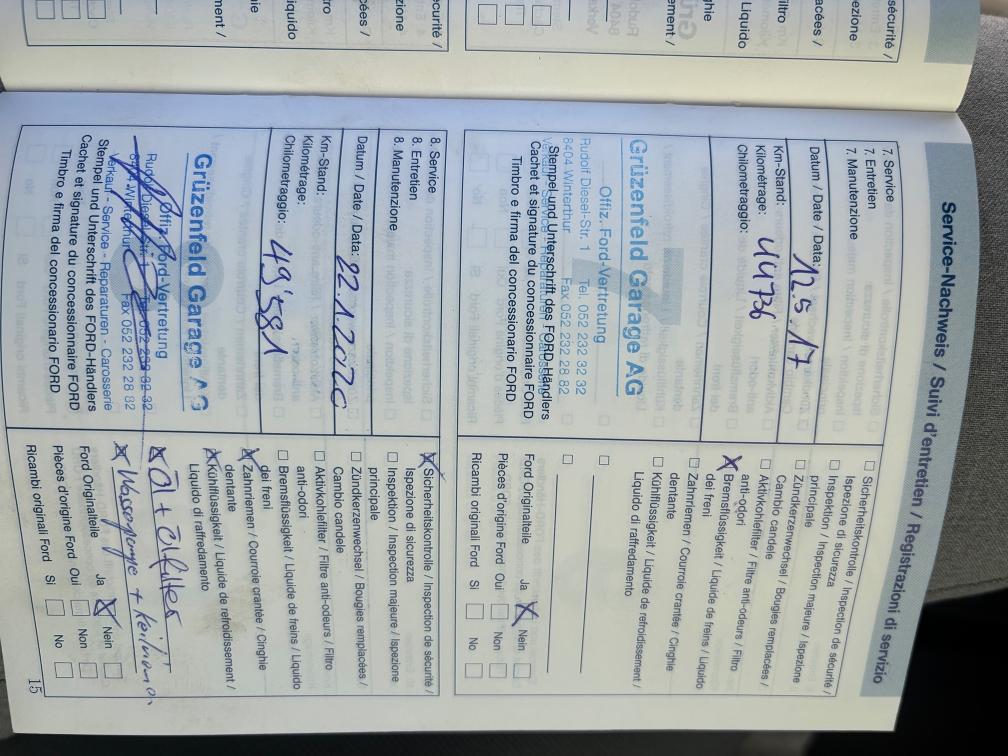 Service-Nachweis / Suivi d'entretien / Registrazioni di servizio
7. Service
7. Entretien
7. Manutenzione
Datum / Date / Data: 12.5.17
Km-Stand:
Kilométrage: 44736
Chilometraggio:
Grüzenfeld Garage AG
Offiz. Ford-Vertretung
Rudolf Diesel-Str. 1 Tel. 052 232 32 32
8404 Winterthur Fax 052 232 28 82
Verkauf - Service - Reparaturen - Carosserie
Stempel und Unterschrift des FORD-Händlers
Cachet et signature du concessionnaire FORD
Timbro e firma del concessionario FORD
Sicherheitskontrolle / Inspection de sécurité /
Ispezione di sicurezza
Inspektion / Inspection majeure / Ispezione
principale
Zündkerzenwechsel / Bougies remplacées /
Cambio candele
Aktivkohlefilter / Filtre anti-odeurs / Filtro
anti-odori
Bremsflüssigkeit / Liquide de freins / Liquido
dei freni
Zahnriemen / Courroie crantée / Cinghie
dentante
Kühlflüssigkeit / Liquide de refroidissement /
Liquido di raffredamento
Ford Originalteile Ja Nein
Pièces d'origine Ford Oui Non
Ricambi originali Ford SI No
8. Service
8. Entretien
8. Manutenzione
Datum / Date / Data: 22.1.2020
Km-Stand:
Kilométrage:
Chilometraggio: 49'581
Grüzenfeld Garage AG
Offiz. Ford-Vertretung
Rudolf Diesel-Str. 1 Tel. 052 232 32 32
8404 Winterthur Fax 052 232 28 82
Verkauf - Service - Reparaturen - Carosserie
Stempel und Unterschrift des FORD-Händlers
Cachet et signature du concessionnaire FORD
Timbro e firma del concessionario FORD
Sicherheitskontrolle / Inspection de sécurité /
Ispezione di sicurezza
Inspektion / Inspection majeure / Ispezione
principale
Zündkerzenwechsel / Bougies remplacées /
Cambio candele
Aktivkohlefilter / Filtre anti-odeurs / Filtro
anti-odori
Bremsflüssigkeit / Liquide de freins / Liquido
dei freni
Zahnriemen / Courroie crantée / Cinghie
dentante
Kühlflüssigkeit / Liquide de refroidissement /
Liquido di raffredamento
Öl + Ölfilter
Wasserpumpe + Keilriemen
Ford Originalteile Ja Nein
Pièces d'origine Ford Oui Non
Ricambi originali Ford SI No
15